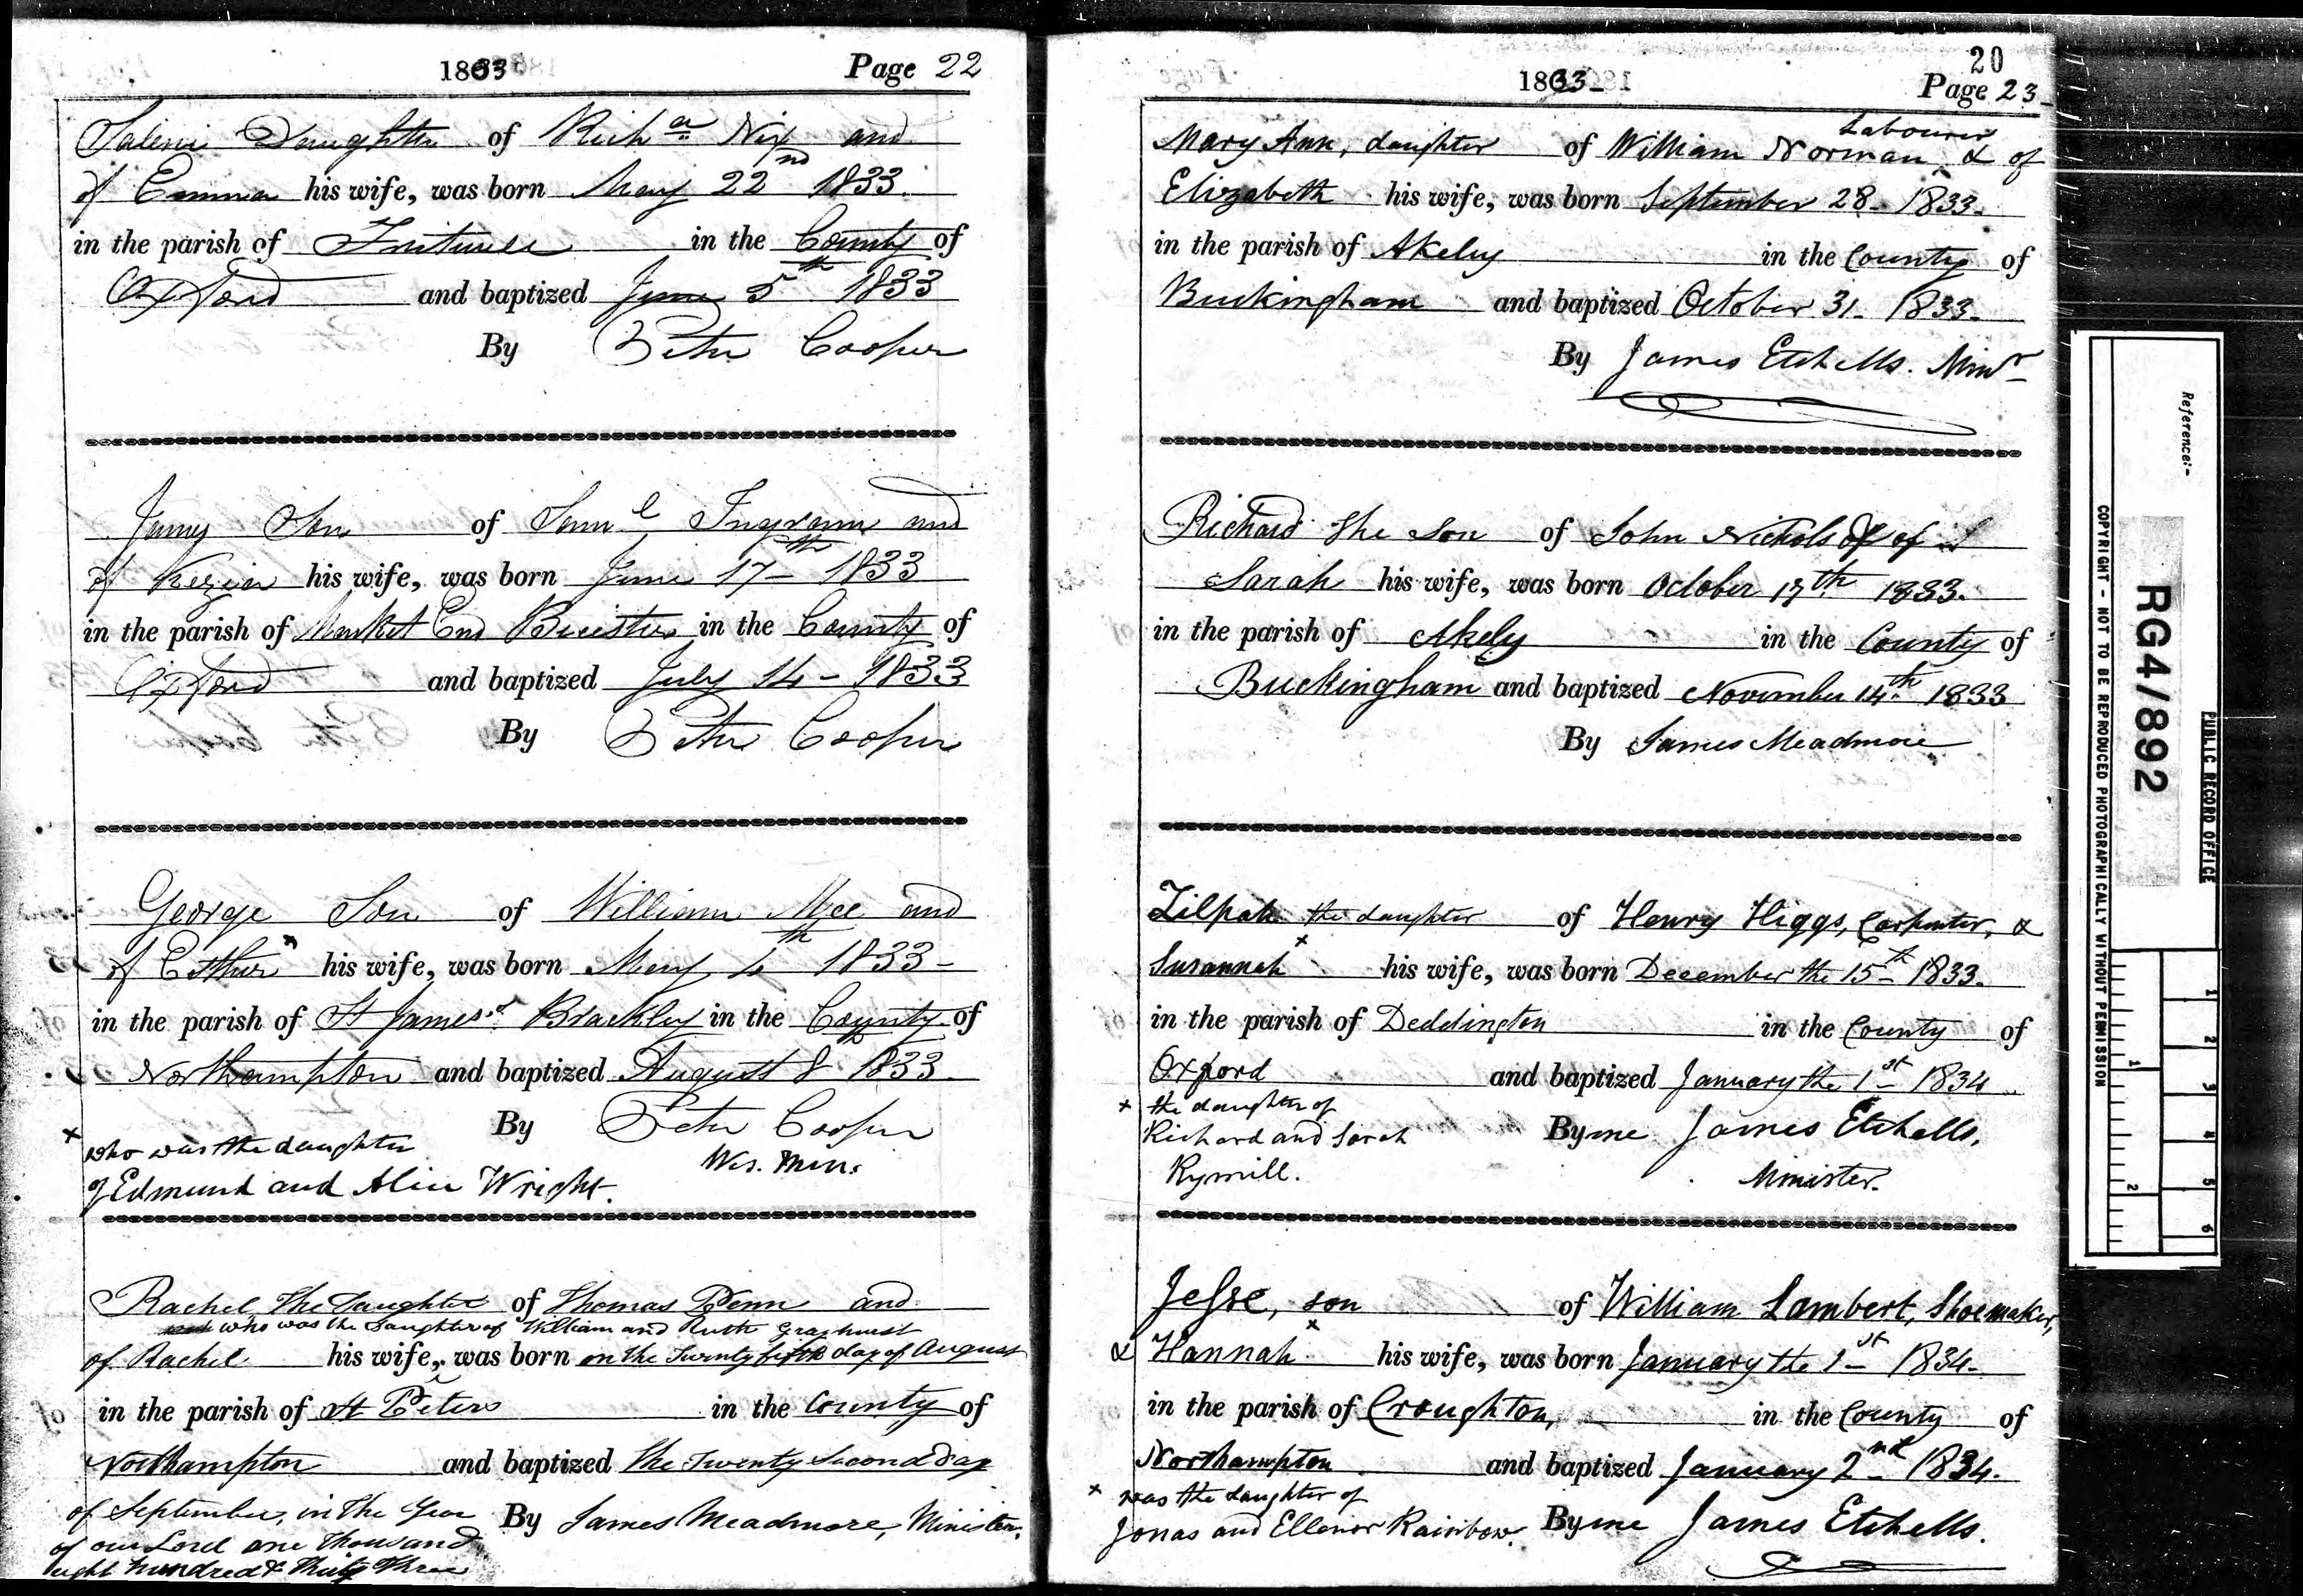 1833
Page 22
Daughter of Rich^d Nix and
of Emma his wife, was born May 22^nd 1833.
in the parish of Fritwell in the County of
Oxford and baptized June 5^th 1833
By Peter Cooper
James Son of Sam^l Ingram and
of Kezia his wife, was born June 17^th 1833
in the parish of Market End Bicester in the County of
Oxford and baptized July 14 - 1833
By Peter Cooper
George Son of William and
of Esther × his wife, was born May 4^th 1833 -
in the parish of St James's Brackley in the County of
Northampton and baptized August 8 1833
By Peter Cooper
Wes. Min.
× who was the daughter
of Edmund and Alice Wright.
Rachel the Daughter of Thomas Penn and
who was the Daughter of William and Ruth
of Rachel his wife, was born on the Twenty fifth day of August
in the parish of St Peters in the County of
Northampton and baptized the Twenty Second day
of September, in the Year By James Meadmore, Minister.
of our Lord one Thousand
eight hundred & Thirty Three
20
1833
Page 23
Labourer
Mary Ann, daughter of William Norman, & of
Elizabeth his wife, was born September 28 - 1833.
in the parish of Akeley in the County of
Buckingham and baptized October 31 - 1833.
By James Etchells. Min^r
Richard the Son of John Nichols of
Sarah his wife, was born October 17^th 1833.
in the parish of Akely in the County of
Buckingham and baptized November 14^th 1833
By James Meadmore
Zilpah the daughter of Henry Higgs, Carpenter, &
Susannah × his wife, was born December the 15^th 1833.
in the parish of Deddington in the County of
Oxford and baptized January the 1^st 1834
× the daughter of
Richard and Sarah By me James Etchells.
Rymill. Minister.
Jesse, son of William Lambert, Shoemaker,
& Hannah × his wife, was born January the 1^st 1834.
in the parish of Croughton, in the County of
Northampton and baptized January 2^nd 1834.
× was the daughter of
Jonas and Ellenor Rainbow. By me James Etchells.
Reference:-
RG4/892
PUBLIC RECORD OFFICE
COPYRIGHT - NOT TO BE REPRODUCED PHOTOGRAPHICALLY WITHOUT PERMISSION
1 2 3 4 5 6
1 2